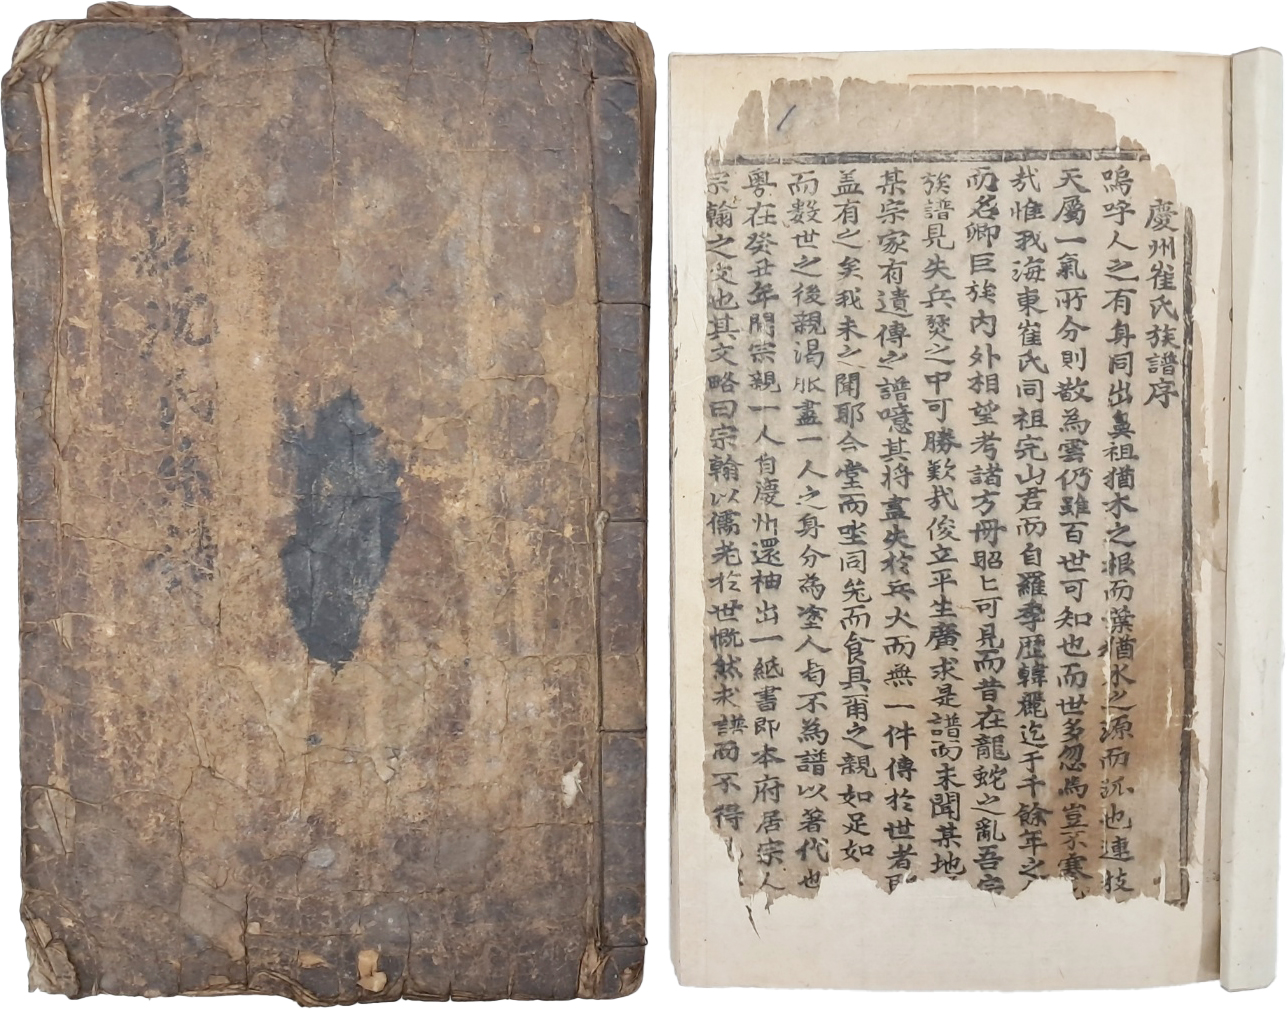 慶州崔氏族譜序
嗚呼人之有身同出鼻祖猶木之根而葉猶水之源而派也連技
天屬一氣所分則散為雲仍雖百世可知也而世多忽焉豈不寒
㢤惟我海東崔氏同祖完山君而自羅季歷韓麗迄于千餘年之
而名卿巨族內外相望考諸方冊昭〻可見而昔在龍蛇之亂吾宗
族譜見失兵燹之中可勝歎㢤俊立平生廣求是譜而未聞某地
某宗家有遺傳之譜噫其将盡失於兵火而無一件傳於世者
盖有之矣我未之聞耶今堂而坐同筅而食具甫之親如足如
而数世之後親渴服盡一人之身分為塗人者不為譜以著代也
粤在癸丑年間宗親一人自慶州還袖出一紙書即本府居宗人
宗翰之文也其文略曰宗翰以儒老於世慨然求譜而不得